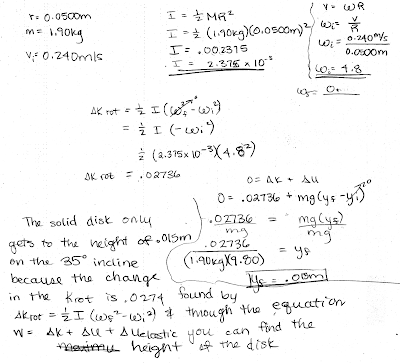 r = 0.0500m
m = 1.90kg
Vi = 0.240m/s
I = ½ MR²
I = ½ (1.90kg)(0.0500m)²
I = .002375
I = 2.375 x 10⁻³
V = ωR
ωi = V/R
ωi = 0.240m/s / 0.0500m
ωi = 4.8
ωf = 0
ΔK rot = ½ I (ωf² - ωi²)
= ½ I (-ωi²)
½ (2.375 x 10⁻³)(4.8²)
ΔK rot = .02736
0 = ΔK + ΔU
0 = .02736 + mg(yf - yi)
.02736 / mg = mg(yf) / mg
.02736 / (1.90kg)(9.80) = yf
yf = .015m
The solid disk only
gets to the height of .015m
on the 35° incline
because the change
in the Krot is .0274 found by
ΔKrot = ½ I (ωf² - ωi²) & through the equation
W = ΔK + ΔU + ΔUelastic you can find the
height of the disk